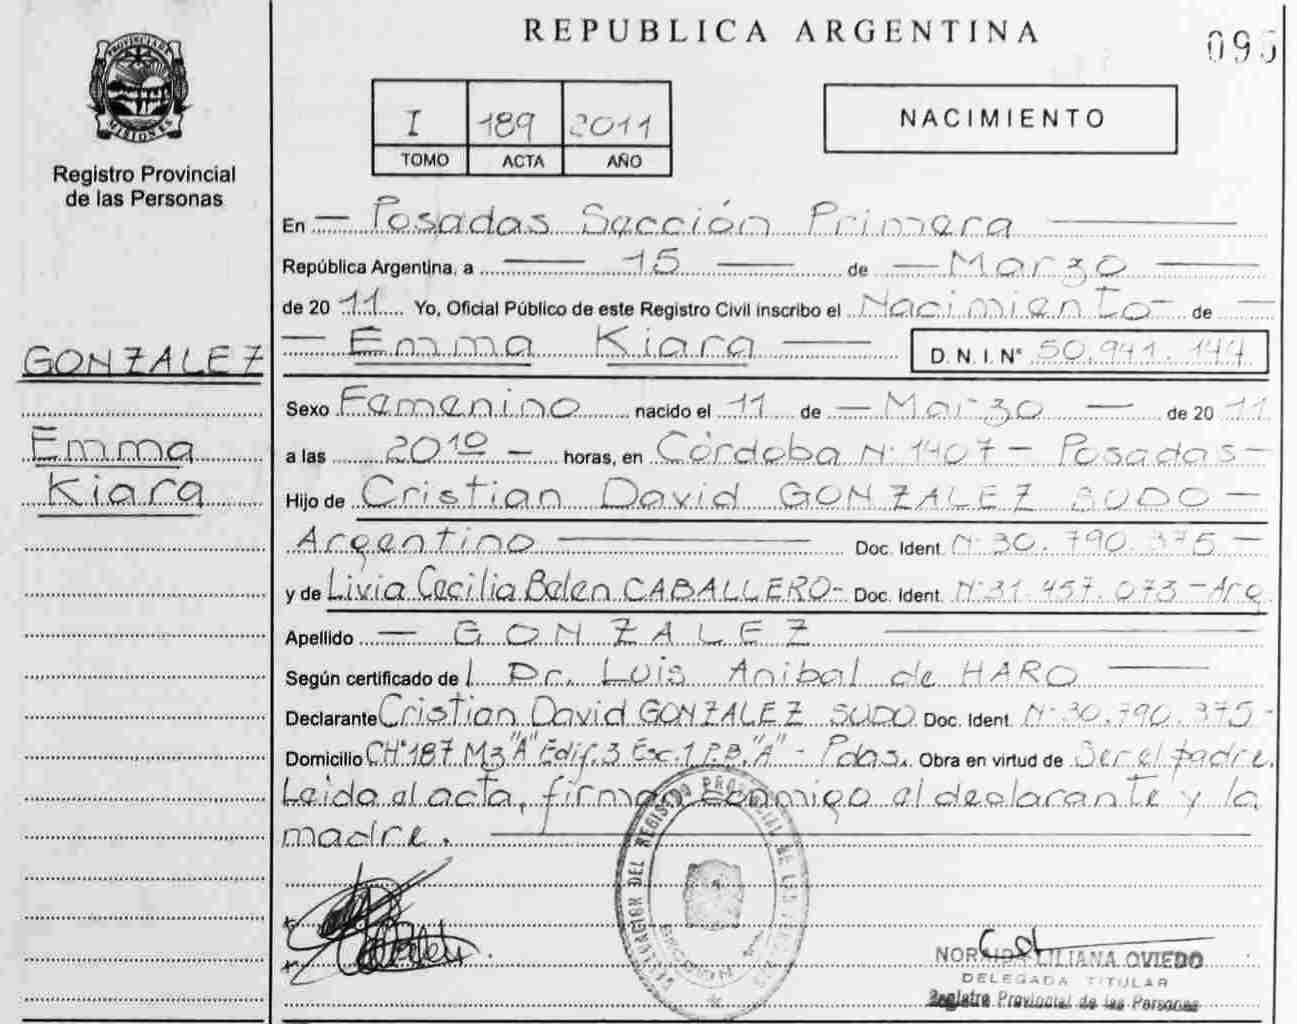 REPUBLICA ARGENTINA
095
PROVINCIA DE MISIONES
Registro Provincial
de las Personas
I 189 2011
TOMO ACTA AÑO
NACIMIENTO
En — Posadas Sección Primera —
República Argentina, a — 15 — de — Marzo —
de 20 11 Yo, Oficial Público de este Registro Civil inscribo el Nacimiento - de —
— Emma Kiara — D. N. I. Nº 50.941.144
GONZALEZ
Emma
Kiara
Sexo Femenino nacido el 11 de — Marzo — de 20 11
a las 20¹⁰ — horas, en Córdoba Nº 1407 - Posadas -
Hijo de Cristian David GONZALEZ SUDO —
Argentino — Doc. Ident. Nº 30.790.375 —
y de Livia Cecilia Belen CABALLERO - Doc. Ident. Nº 31.457.073 - Arg
Apellido — GONZALEZ —
Según certificado de Dr. Luis Anibal de HARO —
Declarante Cristian David GONZALEZ SUDO Doc. Ident. Nº 30.790.375 -
Domicilio CHº 187 M3 "A" Edif. 3 Esc. 1 P.B. "A" - Pdas. Obra en virtud de Ser el padre.
Leida el acta, firma conmigo el declarante y la
madre. —
DEL REGISTRO PROVINCIAL DE LAS
NORAIDA LILIANA OVIEDO
DELEGADA TITULAR
Registro Provincial de las Personas